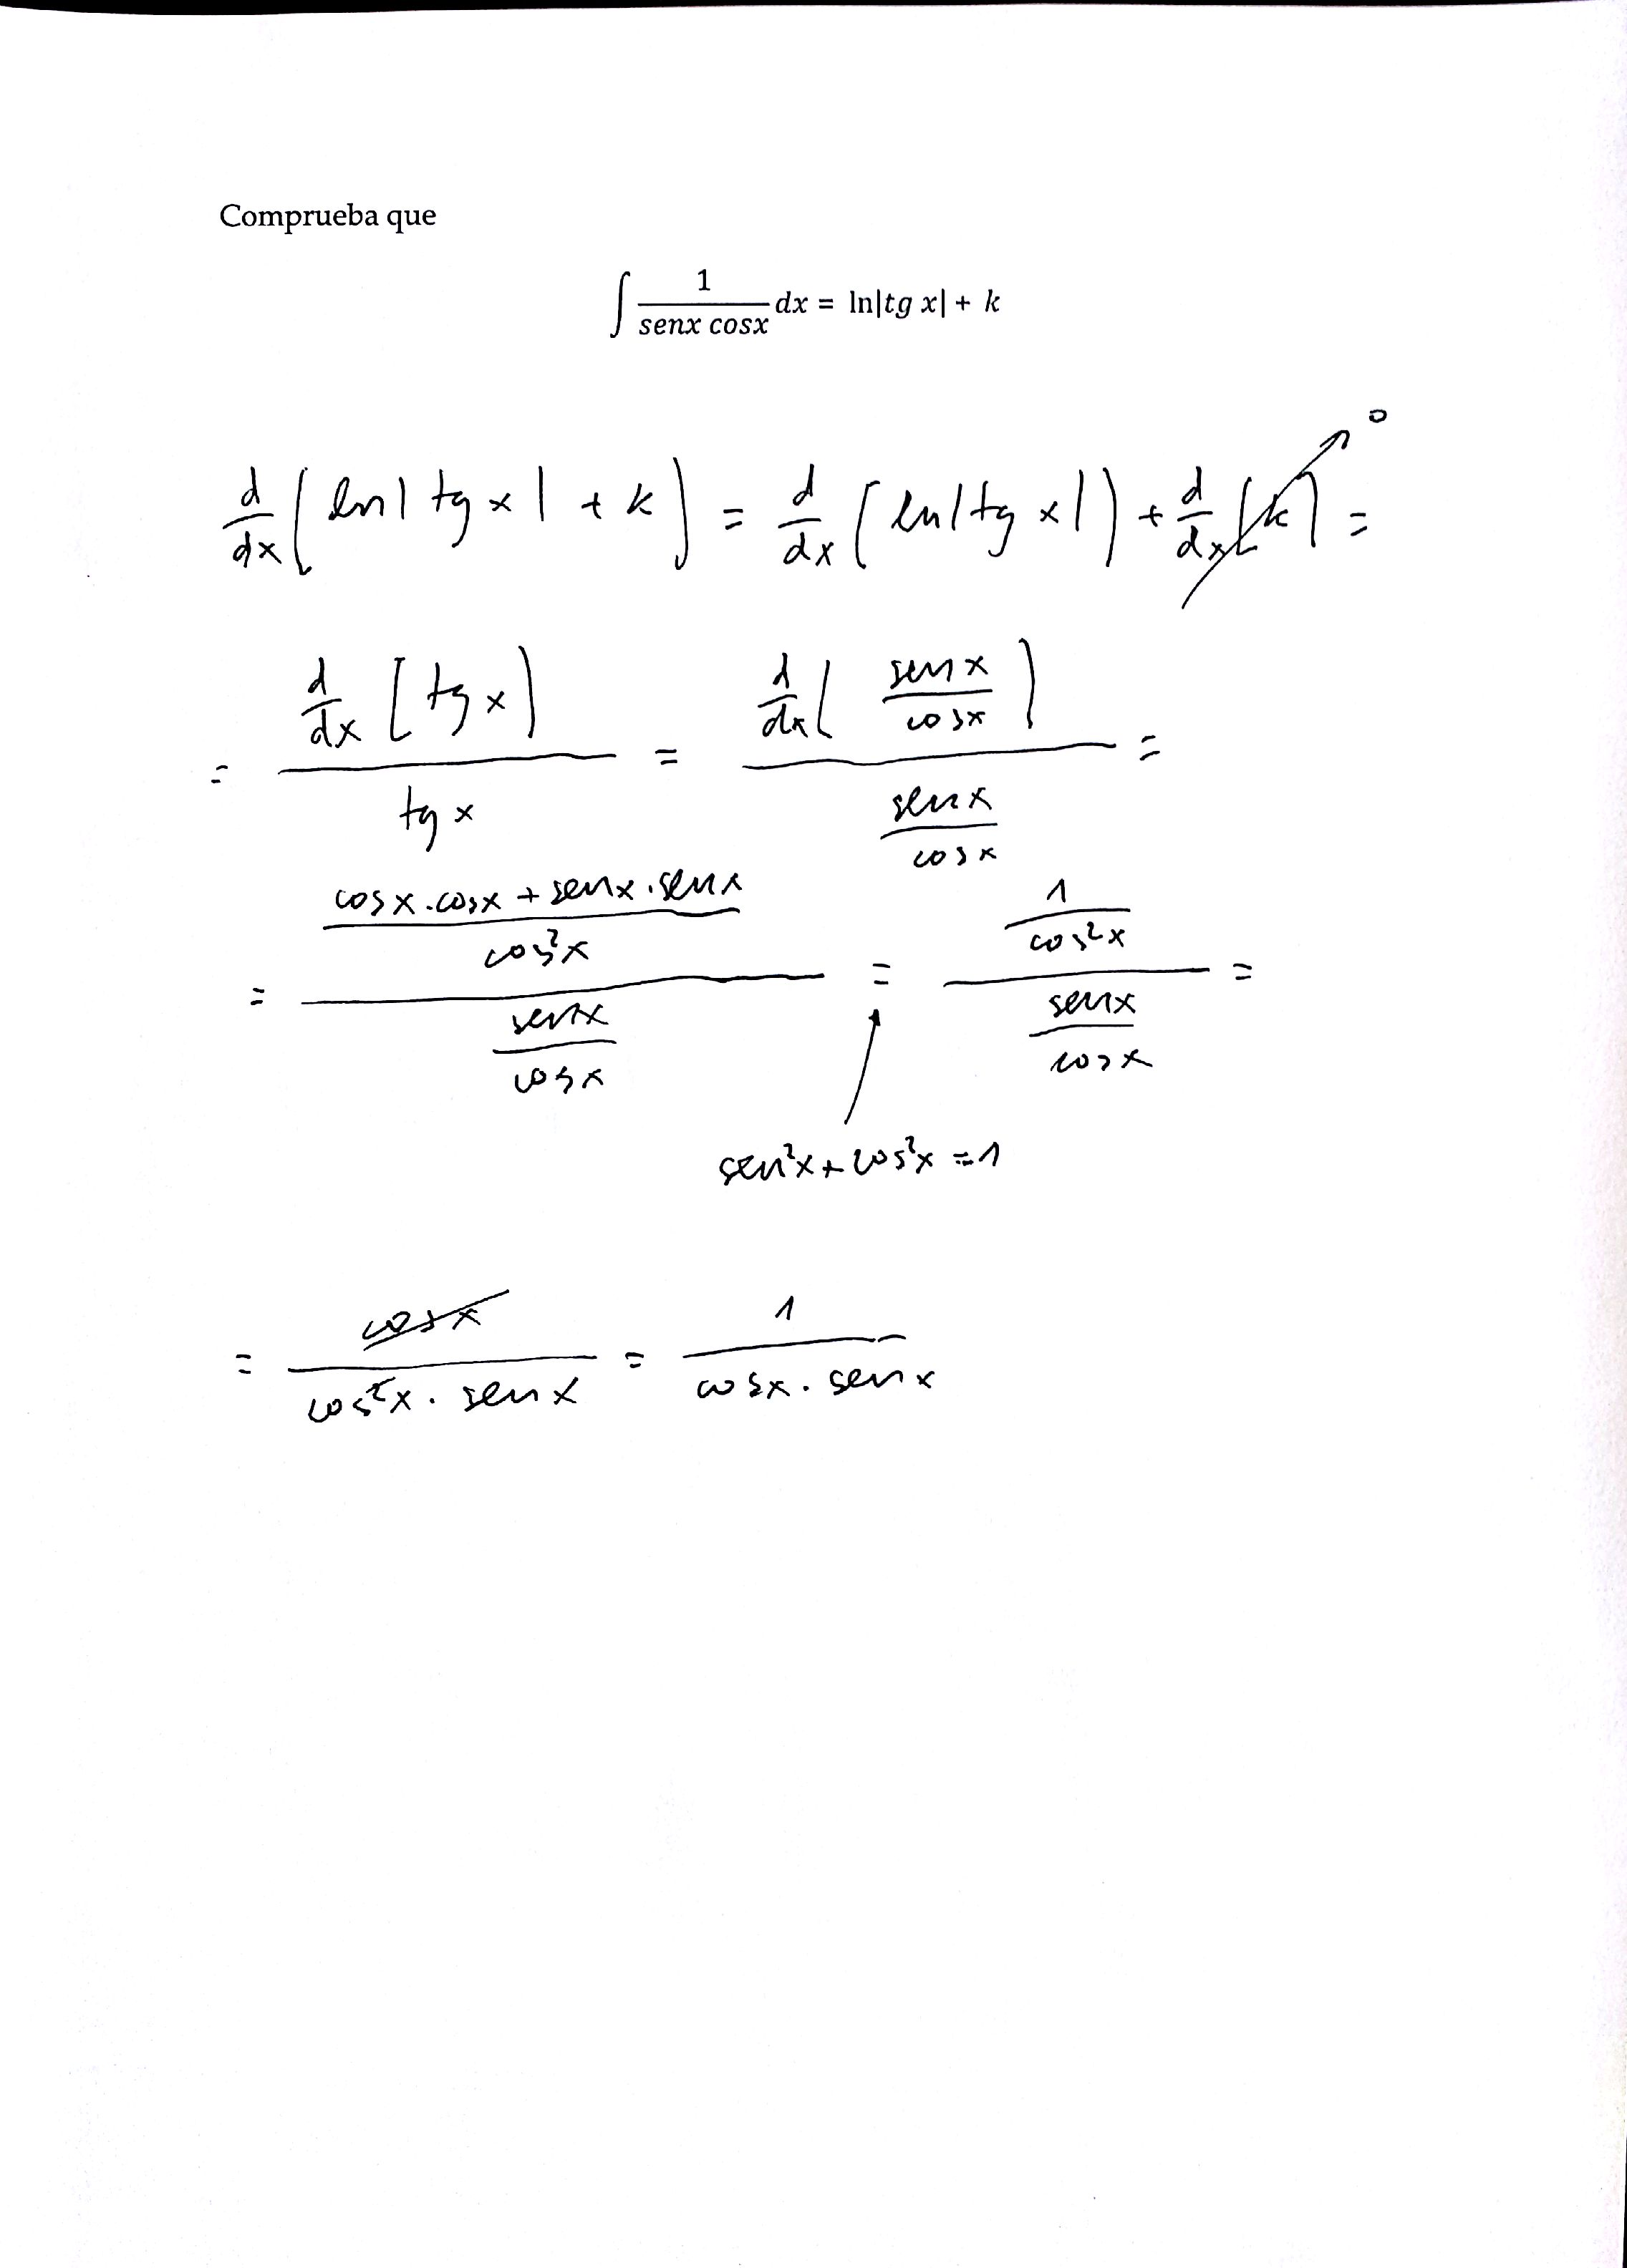 Comprueba que
∫ 1/(senx cosx) dx = ln|tg x| + k
d/dx (ln|tg x| + k) = d/dx (ln|tg x|) + d/dx (k) → 0 =
= (d/dx [tg x)) / (tg x) = (d/dx (sen x / cos x)) / (sen x / cos x) =
= ((cos x · cos x + sen x · sen x) / cos²x) / (sen x / cos x) = (1 / cos²x) / (sen x / cos x) =
sen²x + cos²x = 1
= cos x / (cos²x · sen x) = 1 / (cos x · sen x)